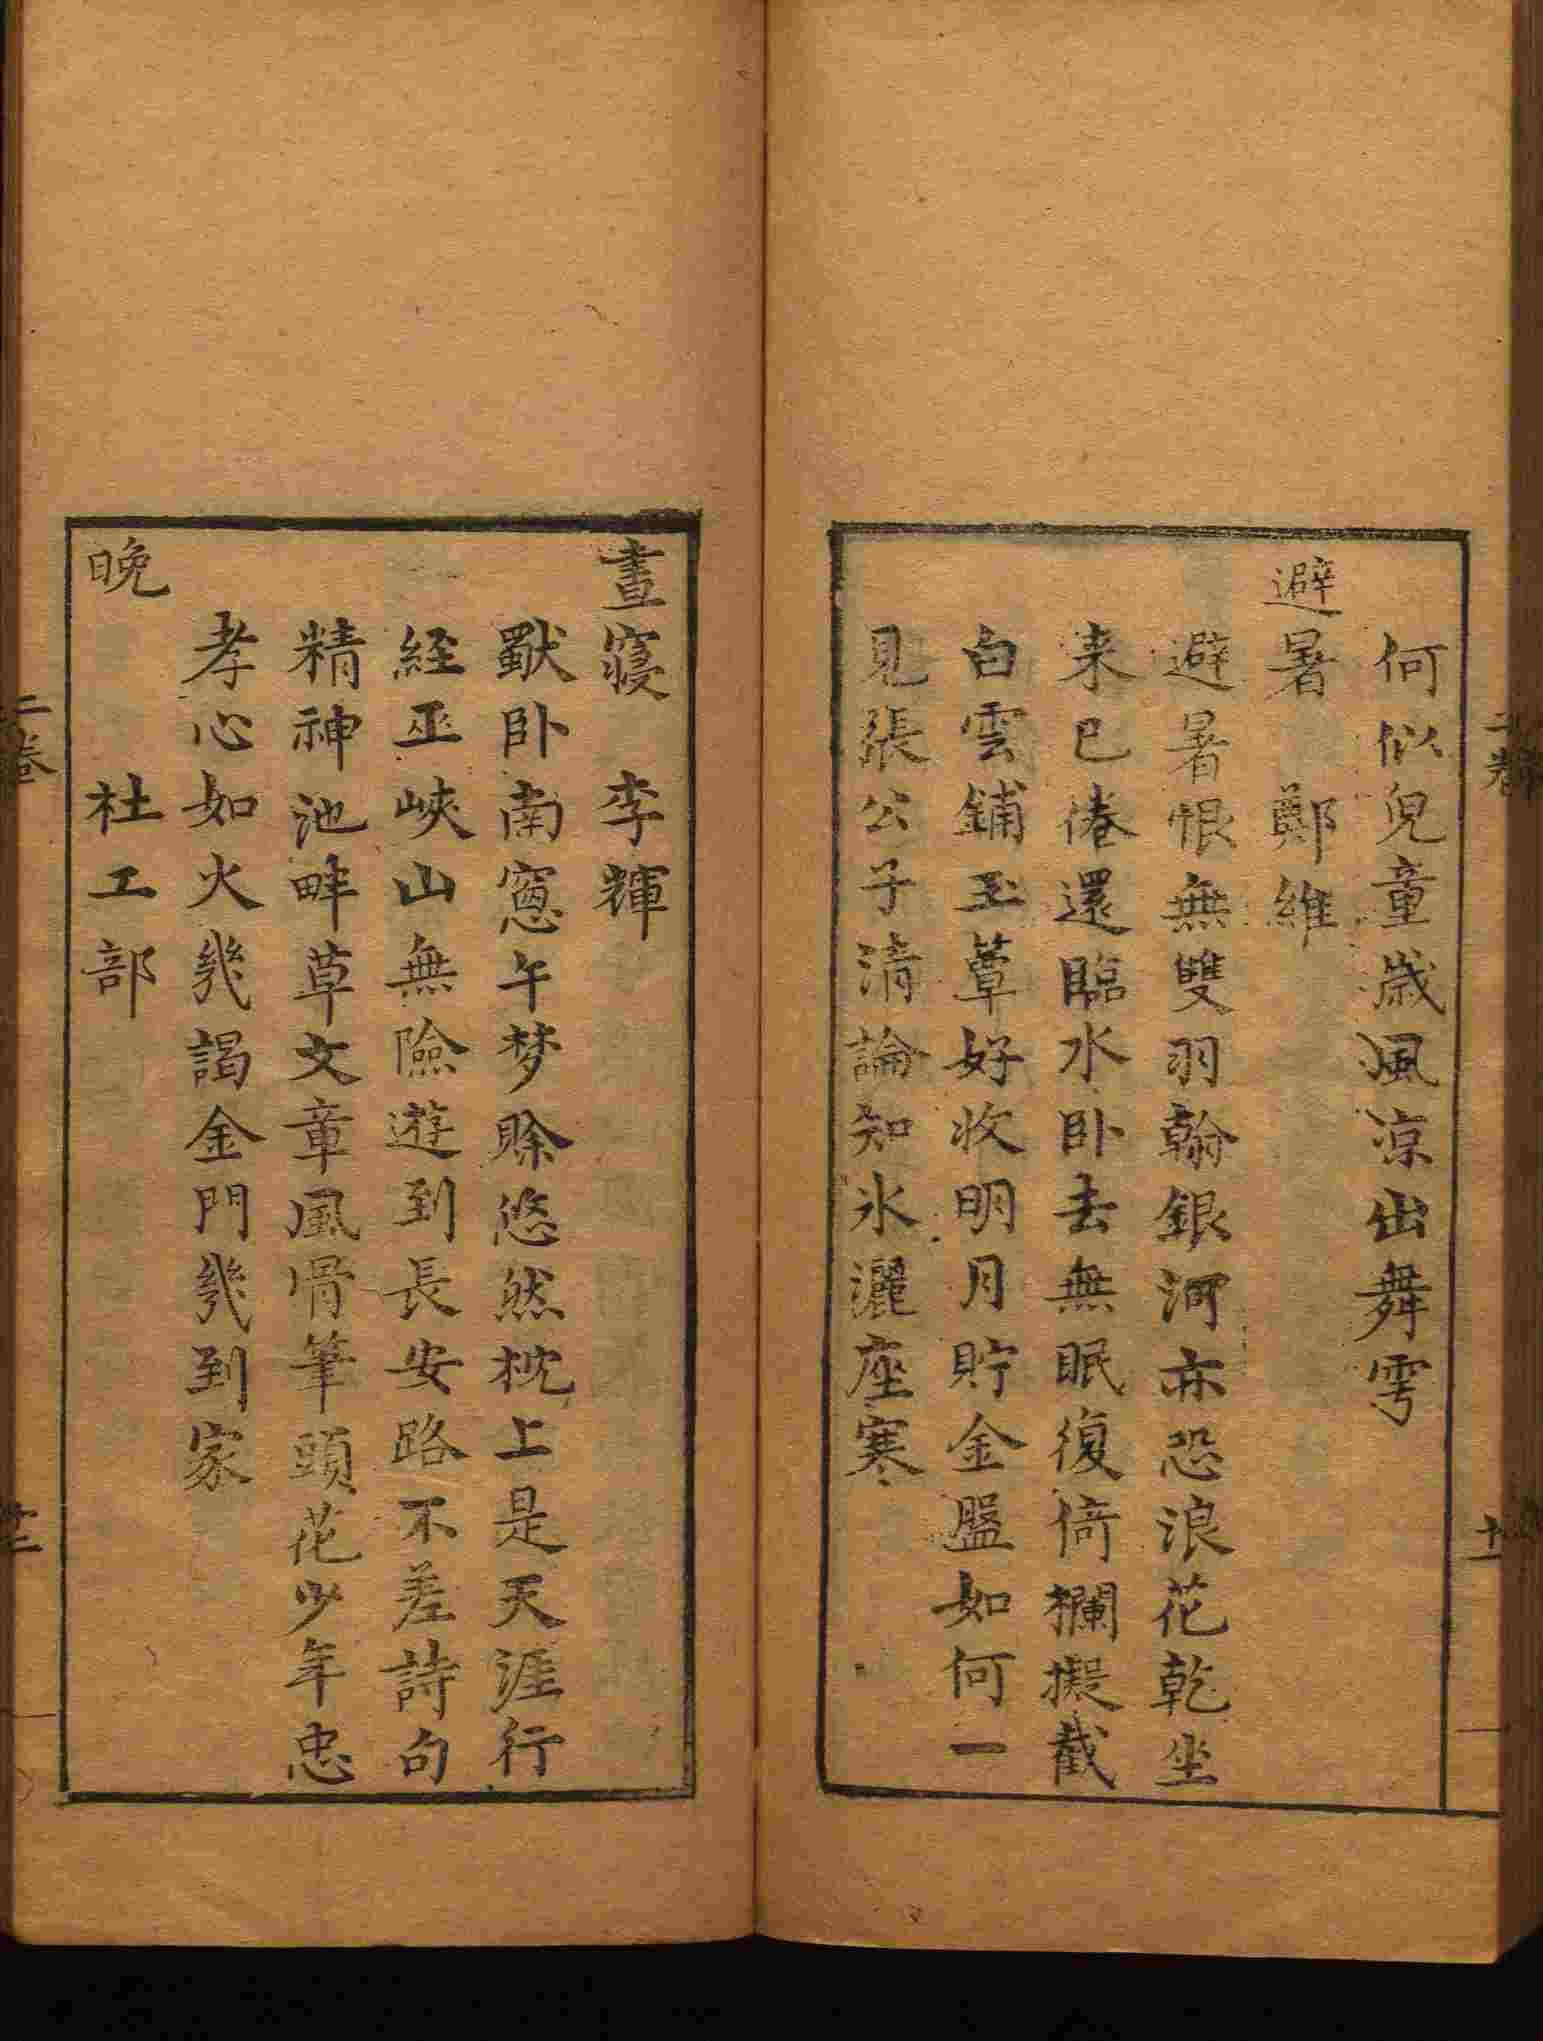 何似兒童歲風凉出舞雩
避暑　鄭維
避暑恨無雙羽翰銀河亦恐浪花乾坐
来已倦還臨水卧去無眠復倚欄擬截
白雲鋪玉蕈好收明月貯金盤如何一
見張公子清論知氷灑座寒
晝寢　李輝
獸卧南窻午梦賒悠然枕上是天涯行
經巫峽山無險遊到長安路不差詩句
精神池畔草文章風骨筆頭花少年忠
孝心如火幾謁金門幾到家
晚　杜工部
二卷
十一
二卷